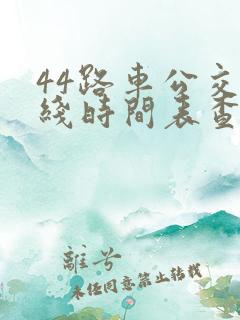 44路車公交
綫時間表查
離兮
未任同意禁止转载